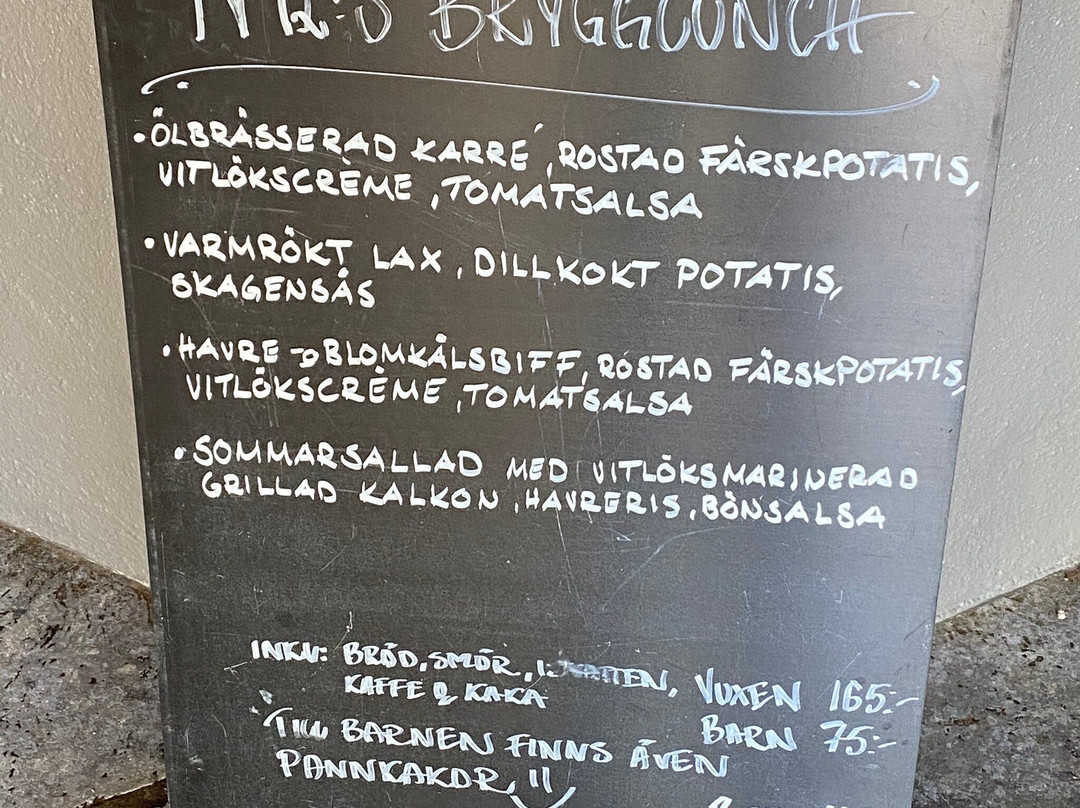 BRYGGLUNCH
• ÖLBRÄSSERAD KARRÉ, ROSTAD FÄRSKPOTATIS,
VITLÖKSCRÈME, TOMATSALSA
• VARMRÖKT LAX, DILLKOKT POTATIS,
SKAGENSÅS
• HAVRE & BLOMKÅLSBIFF, ROSTAD FÄRSKPOTATIS,
VITLÖKSCRÈME, TOMATSALSA
• SOMMARSALLAD MED VITLÖKSMARINERAD
GRILLAD KALKON, HAVRERIS, BÖNSALSA
INKL: BRÖD, SMÖR, VUXEN 165:-
KAFFE & KAKA BARN 75:-
TILL BARNEN FINNS ÄVEN
PANNKAKOR